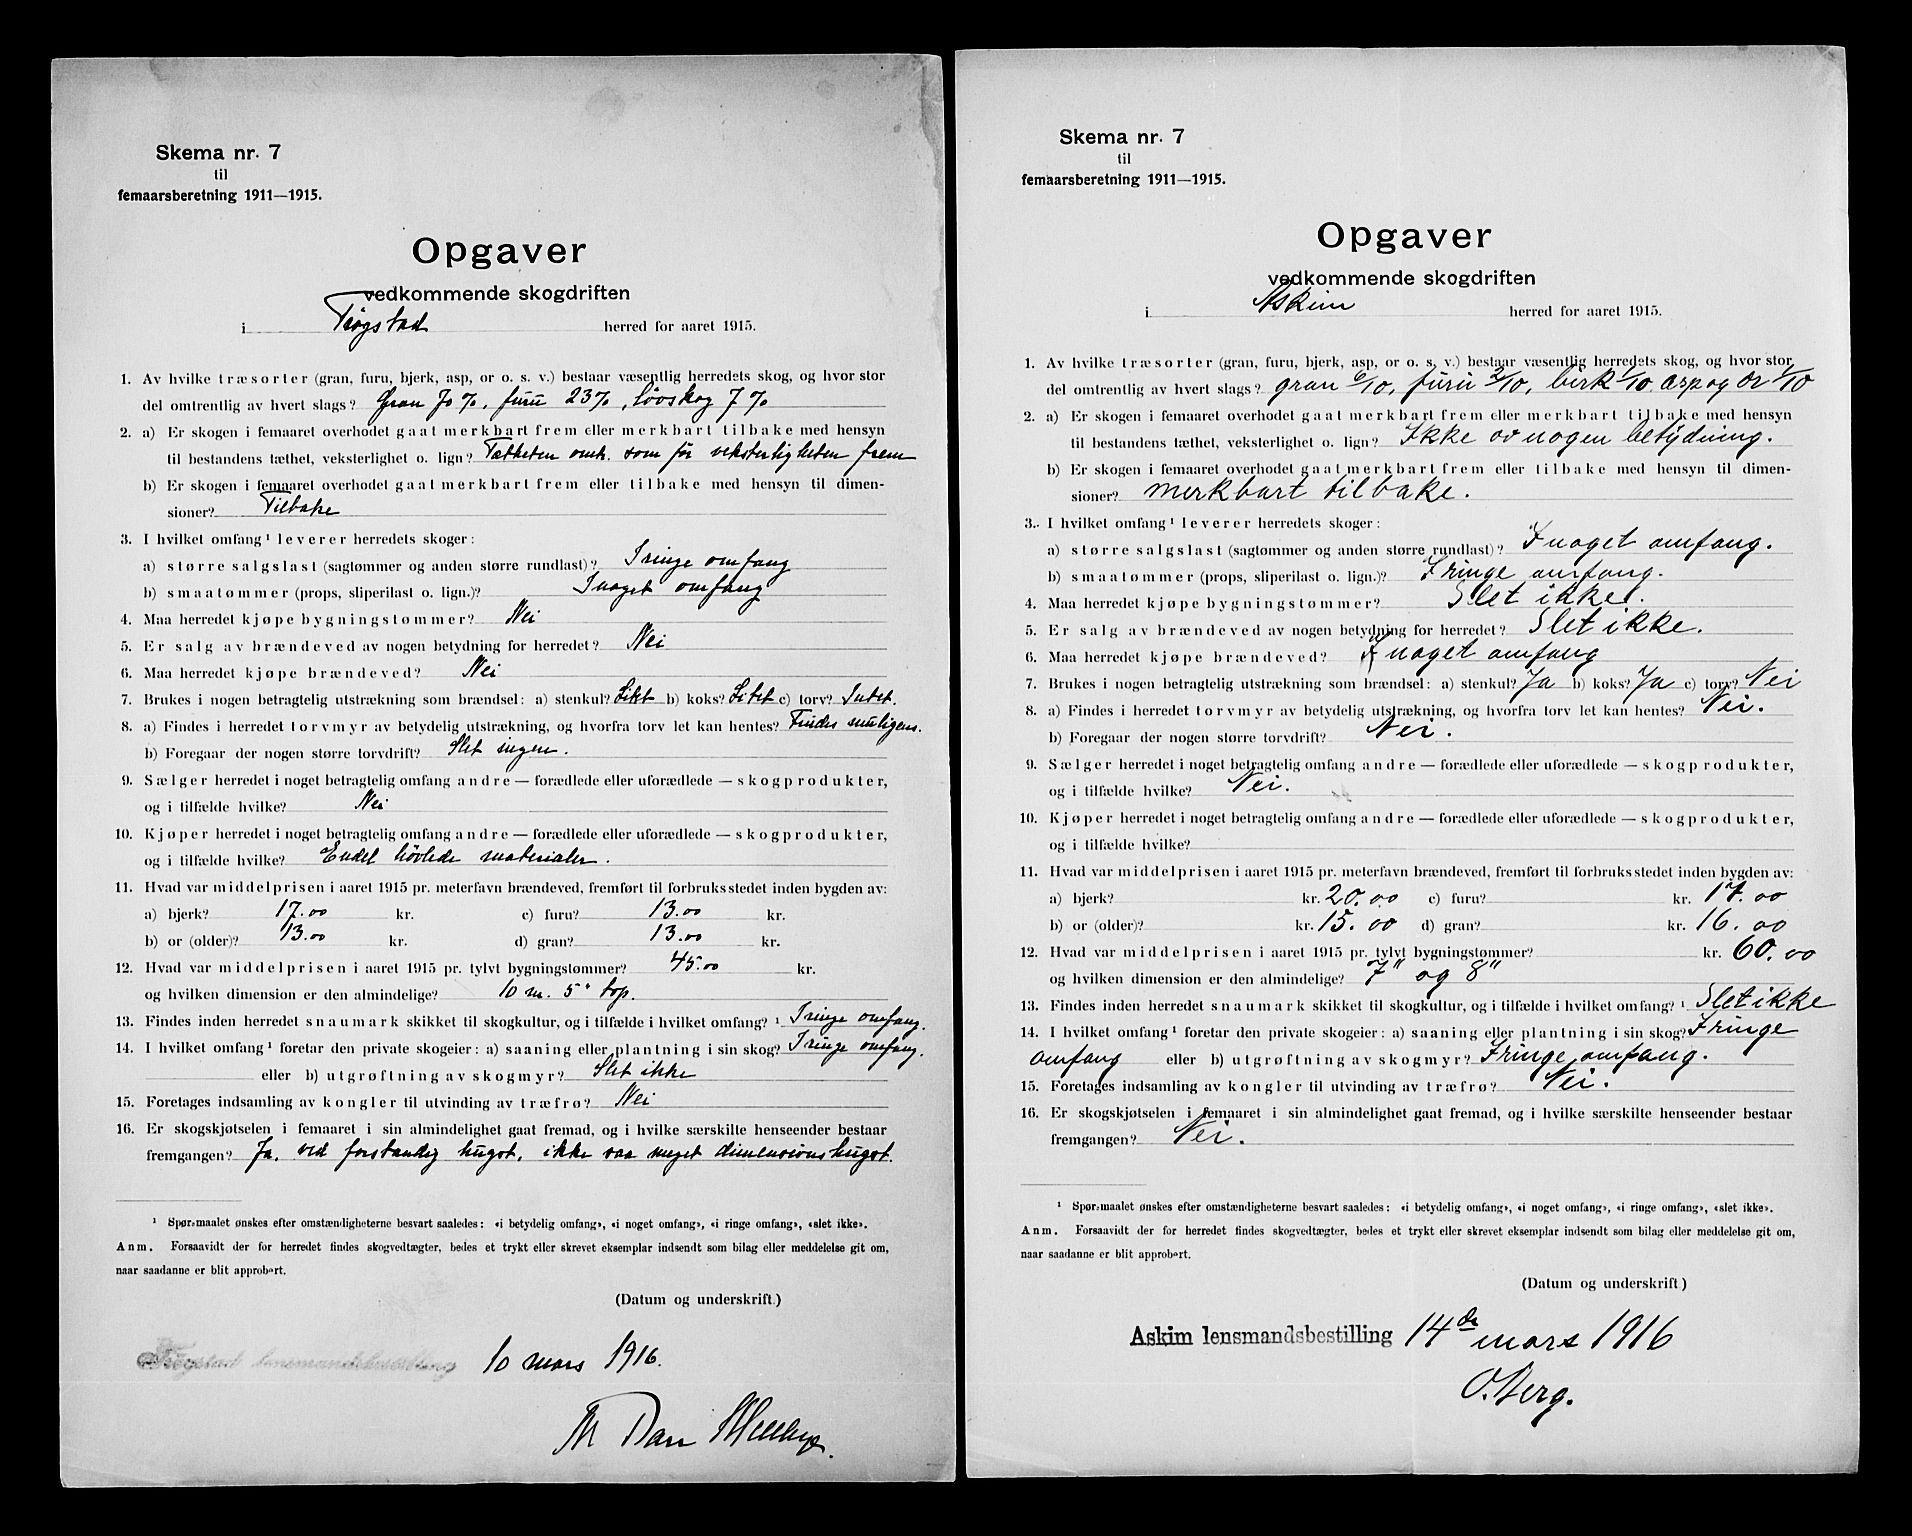 Skema nr. 7
til
femaarsberetning 1911—1915.
Opgaver
vedkommende skogdriften
i Trøgstad herred for aaret 1915.
1. Av hvilke træsorter (gran, furu, bjerk, asp, or o. s. v.) bestaar væsentlig herredets skog, og hvor stor
del omtrentlig av hvert slags? Gran 70 %, furu 23 %, løvskog 7 %
2. a) Er skogen i femaaret overhodet gaat merkbart frem eller merkbart tilbake med hensyn
til bestandens tæthet, veksterlighet o. lign.? Tætheten omtr. som før veksterligheten frem
b) Er skogen i femaaret overhodet gaat merkbart frem eller tilbake med hensyn til dimen-
sioner? Tilbake
3. I hvilket omfang¹ leverer herredets skoger:
a) større salgslast (sagtømmer og anden større rundlast)? I ringe omfang
b) smaatømmer (props, sliperilast o. lign.)? I noget omfang
4. Maa herredet kjøpe bygningstømmer? Nei
5. Er salg av brændeved av nogen betydning for herredet? Nei
6. Maa herredet kjøpe brændeved? Nei
7. Brukes i nogen betragtelig utstrækning som brændsel: a) stenkul? Litt b) koks? Litet c) torv? Intet.
8. a) Findes i herredet torvmyr av betydelig utstrækning, og hvorfra torv let kan hentes? Findes muligens.
b) Foregaar der nogen større torvdrift? Slet ingen.
9. Sælger herredet i noget betragtelig omfang andre — forædlede eller uforædlede — skogprodukter,
og i tilfælde hvilke? Nei
10. Kjøper herredet i noget betragtelig omfang andre — forædlede eller uforædlede — skogprodukter,
og i tilfælde hvilke? Endel høvlede materialer.
11. Hvad var middelprisen i aaret 1915 pr. meterfavn brændeved, fremført til forbruksstedet inden bygden av:
a) bjerk? 17.00 kr. c) furu? 13.00 kr.
b) or (older)? 13.00 kr. d) gran? 13.00 kr.
12. Hvad var middelprisen i aaret 1915 pr. tylvt bygningstømmer? 45.00 kr.
og hvilken dimension er den almindelige? 10 m. 5" top.
13. Findes inden herredet snaumark skikket til skogkultur, og i tilfælde i hvilket omfang? ¹ I ringe omfang.
14. I hvilket omfang¹ foretar den private skogeier: a) saaning eller plantning i sin skog? I ringe omfang.
eller b) utgrøftning av skogmyr? Slet ikke
15. Foretages indsamling av kongler til utvinding av træfrø? Nei
16. Er skogskjøtselen i femaaret i sin almindelighet gaat fremad, og i hvilke særskilte henseender bestaar
fremgangen? Ja, ved forstandig hugst, ikke saa meget dimensionshugst.
¹ Spørsmaalet ønskes efter omstændigheterne besvart saaledes: «i betydelig omfang», «i noget omfang», «i ringe omfang», «slet ikke».
Anm. Forsaavidt der for herredet findes skogvedtægter, bedes et trykt eller skrevet eksemplar indsendt som bilag eller meddelelse git om,
naar saadanne er blit approbert.
(Datum og underskrift.)
Trøgstad lensmandsbestilling 10 mars 1916.
Skema nr. 7
til
femaarsberetning 1911—1915.
Opgaver
vedkommende skogdriften
i Askim herred for aaret 1915.
1. Av hvilke træsorter (gran, furu, bjerk, asp, or o. s. v.) bestaar væsentlig herredets skog, og hvor stor
del omtrentlig av hvert slags? gran 6/10, furu 2/10, birk 1/10. asp og or 1/10
2. a) Er skogen i femaaret overhodet gaat merkbart frem eller merkbart tilbake med hensyn
til bestandens tæthet, veksterlighet o. lign.? Ikke av nogen betydning.
b) Er skogen i femaaret overhodet gaat merkbart frem eller tilbake med hensyn til dimen-
sioner? merkbart tilbake.
3. I hvilket omfang¹ leverer herredets skoger:
a) større salgslast (sagtømmer og anden større rundlast)? I noget omfang.
b) smaatømmer (props, sliperilast o. lign.)? I ringe omfang.
4. Maa herredet kjøpe bygningstømmer? Slet ikke.
5. Er salg av brændeved av nogen betydning for herredet? Slet ikke.
6. Maa herredet kjøpe brændeved? I noget omfang
7. Brukes i nogen betragtelig utstrækning som brændsel: a) stenkul? Ja b) koks? Ja c) torv? Nei
8. a) Findes i herredet torvmyr av betydelig utstrækning, og hvorfra torv let kan hentes? Nei.
b) Foregaar der nogen større torvdrift? Nei.
9. Sælger herredet i noget betragtelig omfang andre — forædlede eller uforædlede — skogprodukter,
og i tilfælde hvilke? Nei.
10. Kjøper herredet i noget betragtelig omfang andre — forædlede eller uforædlede — skogprodukter,
og i tilfælde hvilke?
11. Hvad var middelprisen i aaret 1915 pr. meterfavn brændeved, fremført til forbruksstedet inden bygden av:
a) bjerk? kr. 20.00 c) furu? kr. 17.00
b) or (older)? kr. 15.00 d) gran? kr. 16.00
12. Hvad var middelprisen i aaret 1915 pr. tylvt bygningstømmer? kr. 60.00
og hvilken dimension er den almindelige? 7" og 8"
13. Findes inden herredet snaumark skikket til skogkultur, og i tilfælde i hvilket omfang? ¹ Slet ikke
14. I hvilket omfang¹ foretar den private skogeier: a) saaning eller plantning i sin skog? I ringe
omfang eller b) utgrøftning av skogmyr? I ringe omfang.
15. Foretages indsamling av kongler til utvinding av træfrø? Nei.
16. Er skogskjøtselen i femaaret i sin almindelighet gaat fremad, og i hvilke særskilte henseender bestaar
fremgangen? Nei.
¹ Spørsmaalet ønskes efter omstændigheterne besvart saaledes: «i betydelig omfang», «i noget omfang», «i ringe omfang», «slet ikke».
Anm. Forsaavidt der for herredet findes skogvedtægter, bedes et trykt eller skrevet eksemplar indsendt som bilag eller meddelelse git om,
naar saadanne er blit approbert.
(Datum og underskrift.)
Askim lensmandsbestilling 14de mars 1916
O. Berg.